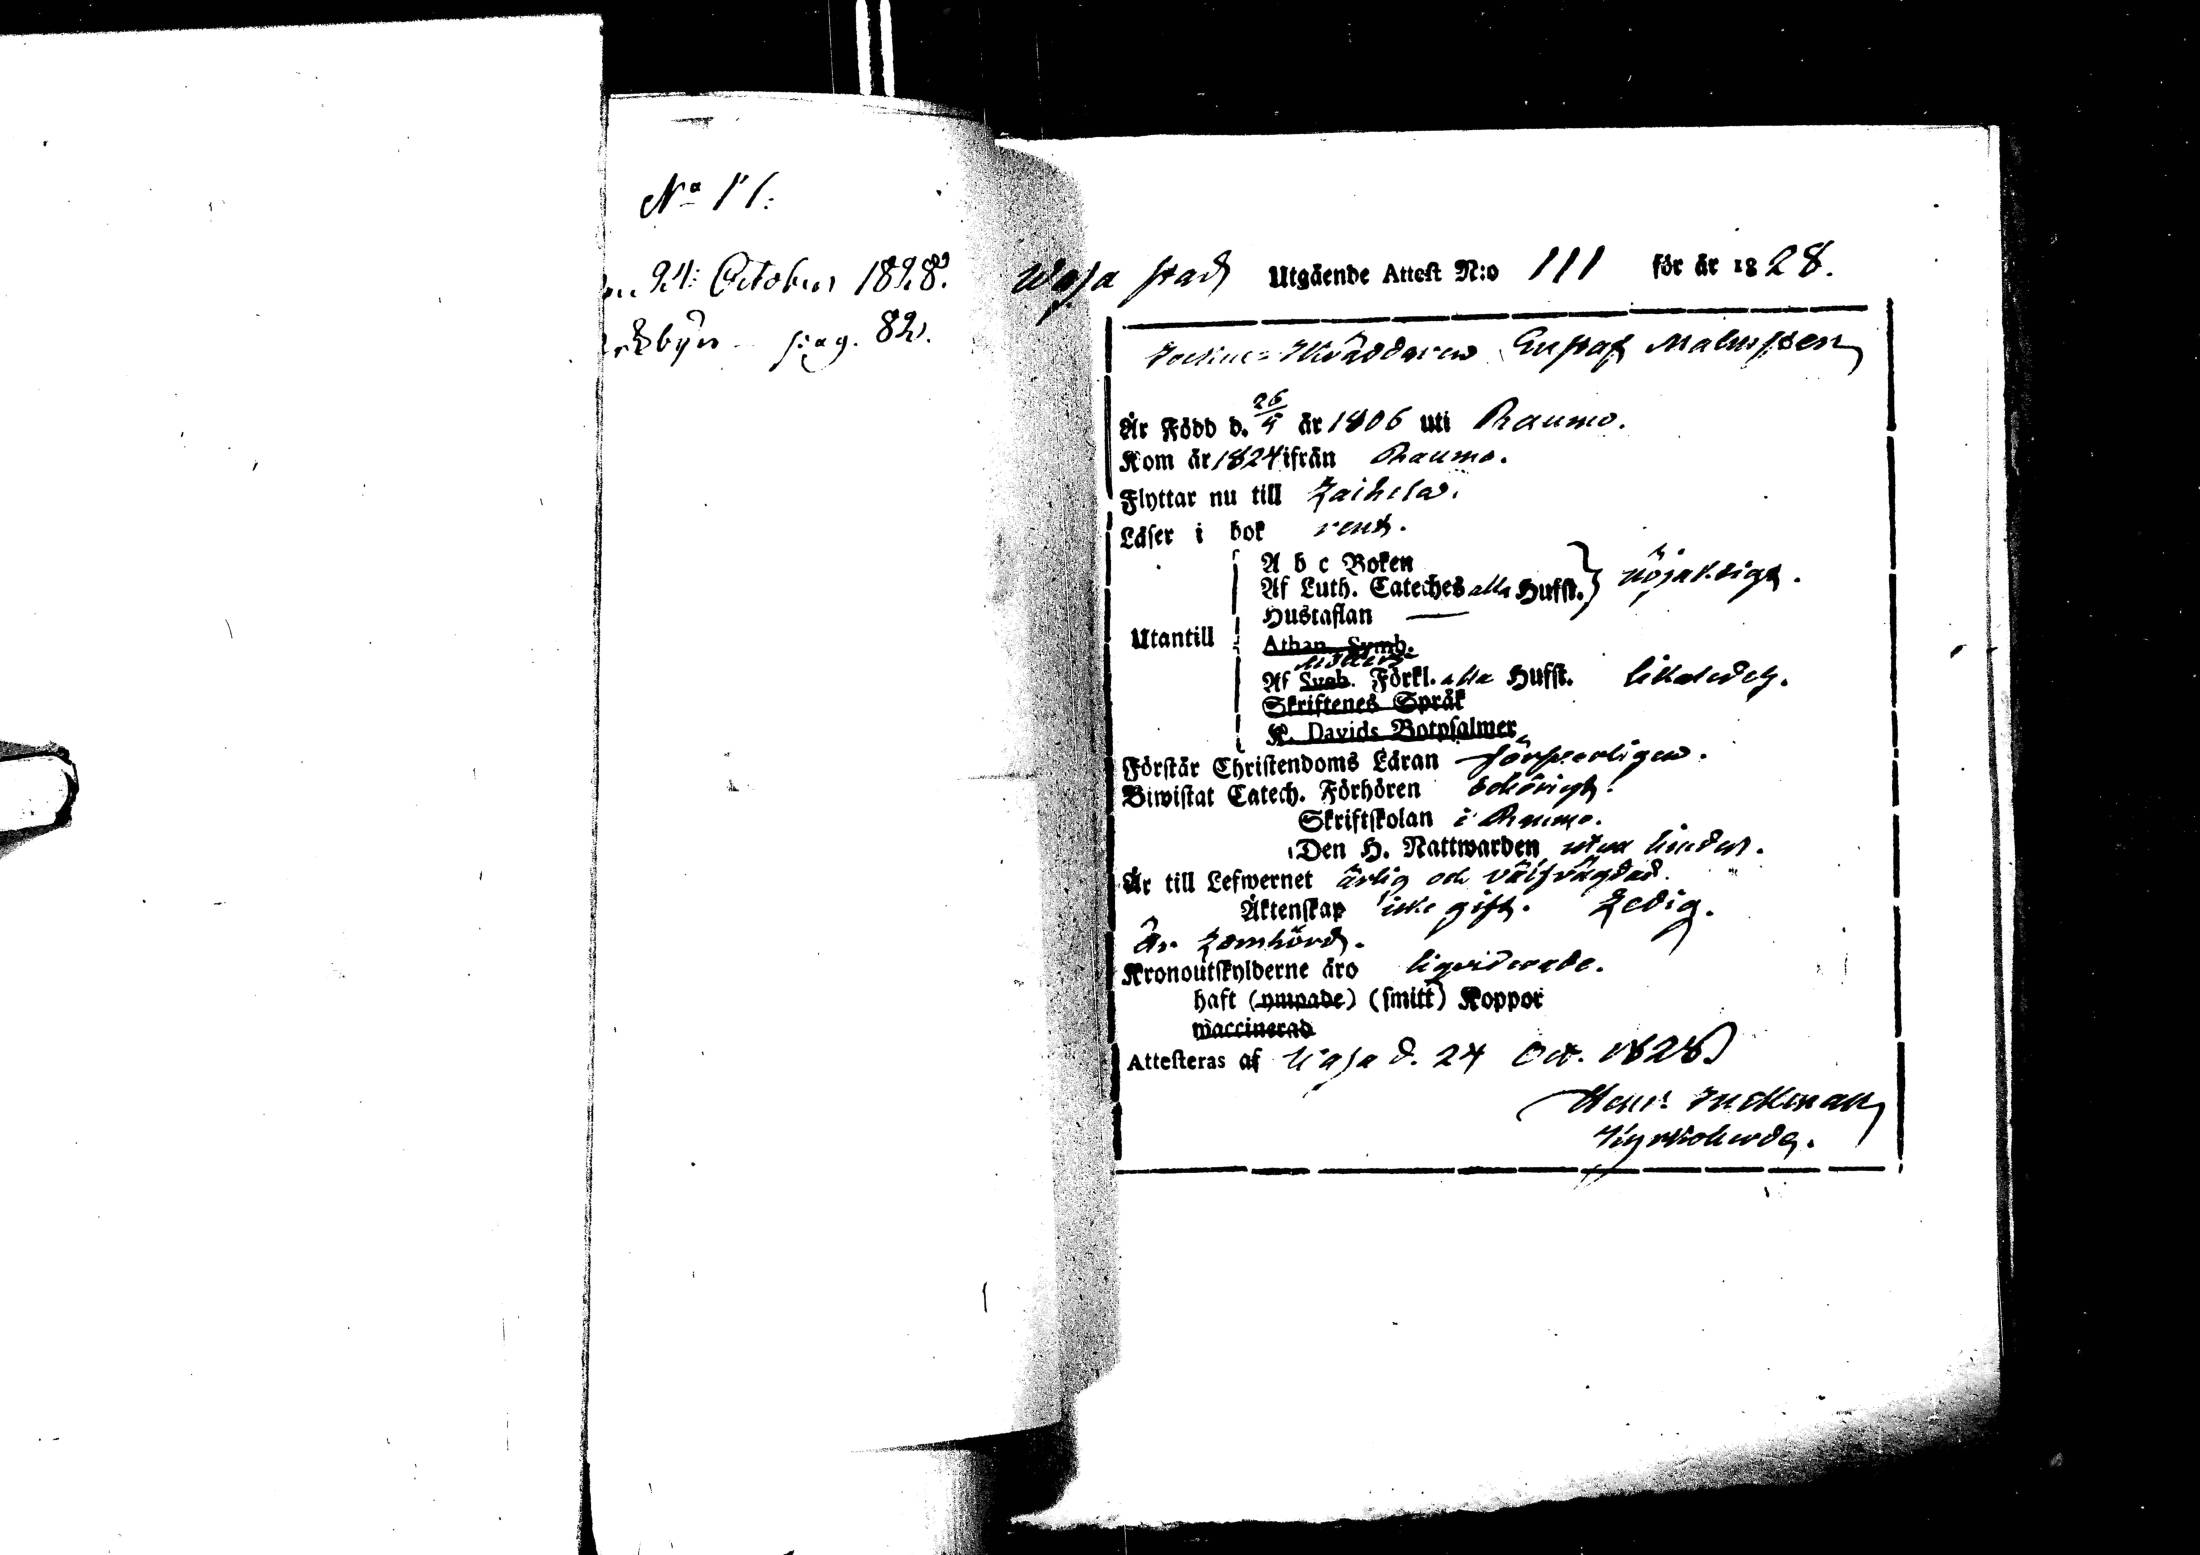 No 11:
24: October 1828.
pag. 82.
Wasa stad Utgående Attest N:o 111 för år 1828.
Gustaf Malmsten
Är Född d. 26/5 år 1806 uti Raumo.
Kom år 1824 ifrån Raumo.
Flyttar nu till Laihela.
Läser i bok rent.
A b c Boken
Af Luth. Cateches alla Hufst. nöjaktigt.
Hustaflan
Utantill
Athan. Symb.
Af Sveb. Förkl. alla Hufst. likaledes.
Skriftenes Språk
K. Davids Botpsalmer
Förstår Christendoms Läran försvarligen.
Biwistat Catech. Förhören behörigt.
Skriftskolan i Raumo.
Den H. Nattwarden utan hinder.
Är till Lefwernet ärlig och välfrägdad.
Äktenskap icke gift. Ledig.
Är
Kronoutskylderne äro liqviderade.
haft (ympade) (smitt) Koppor
waccinerad
Attesteras af Wasa d. 24 Oct. 1828
Kyrkoherde.